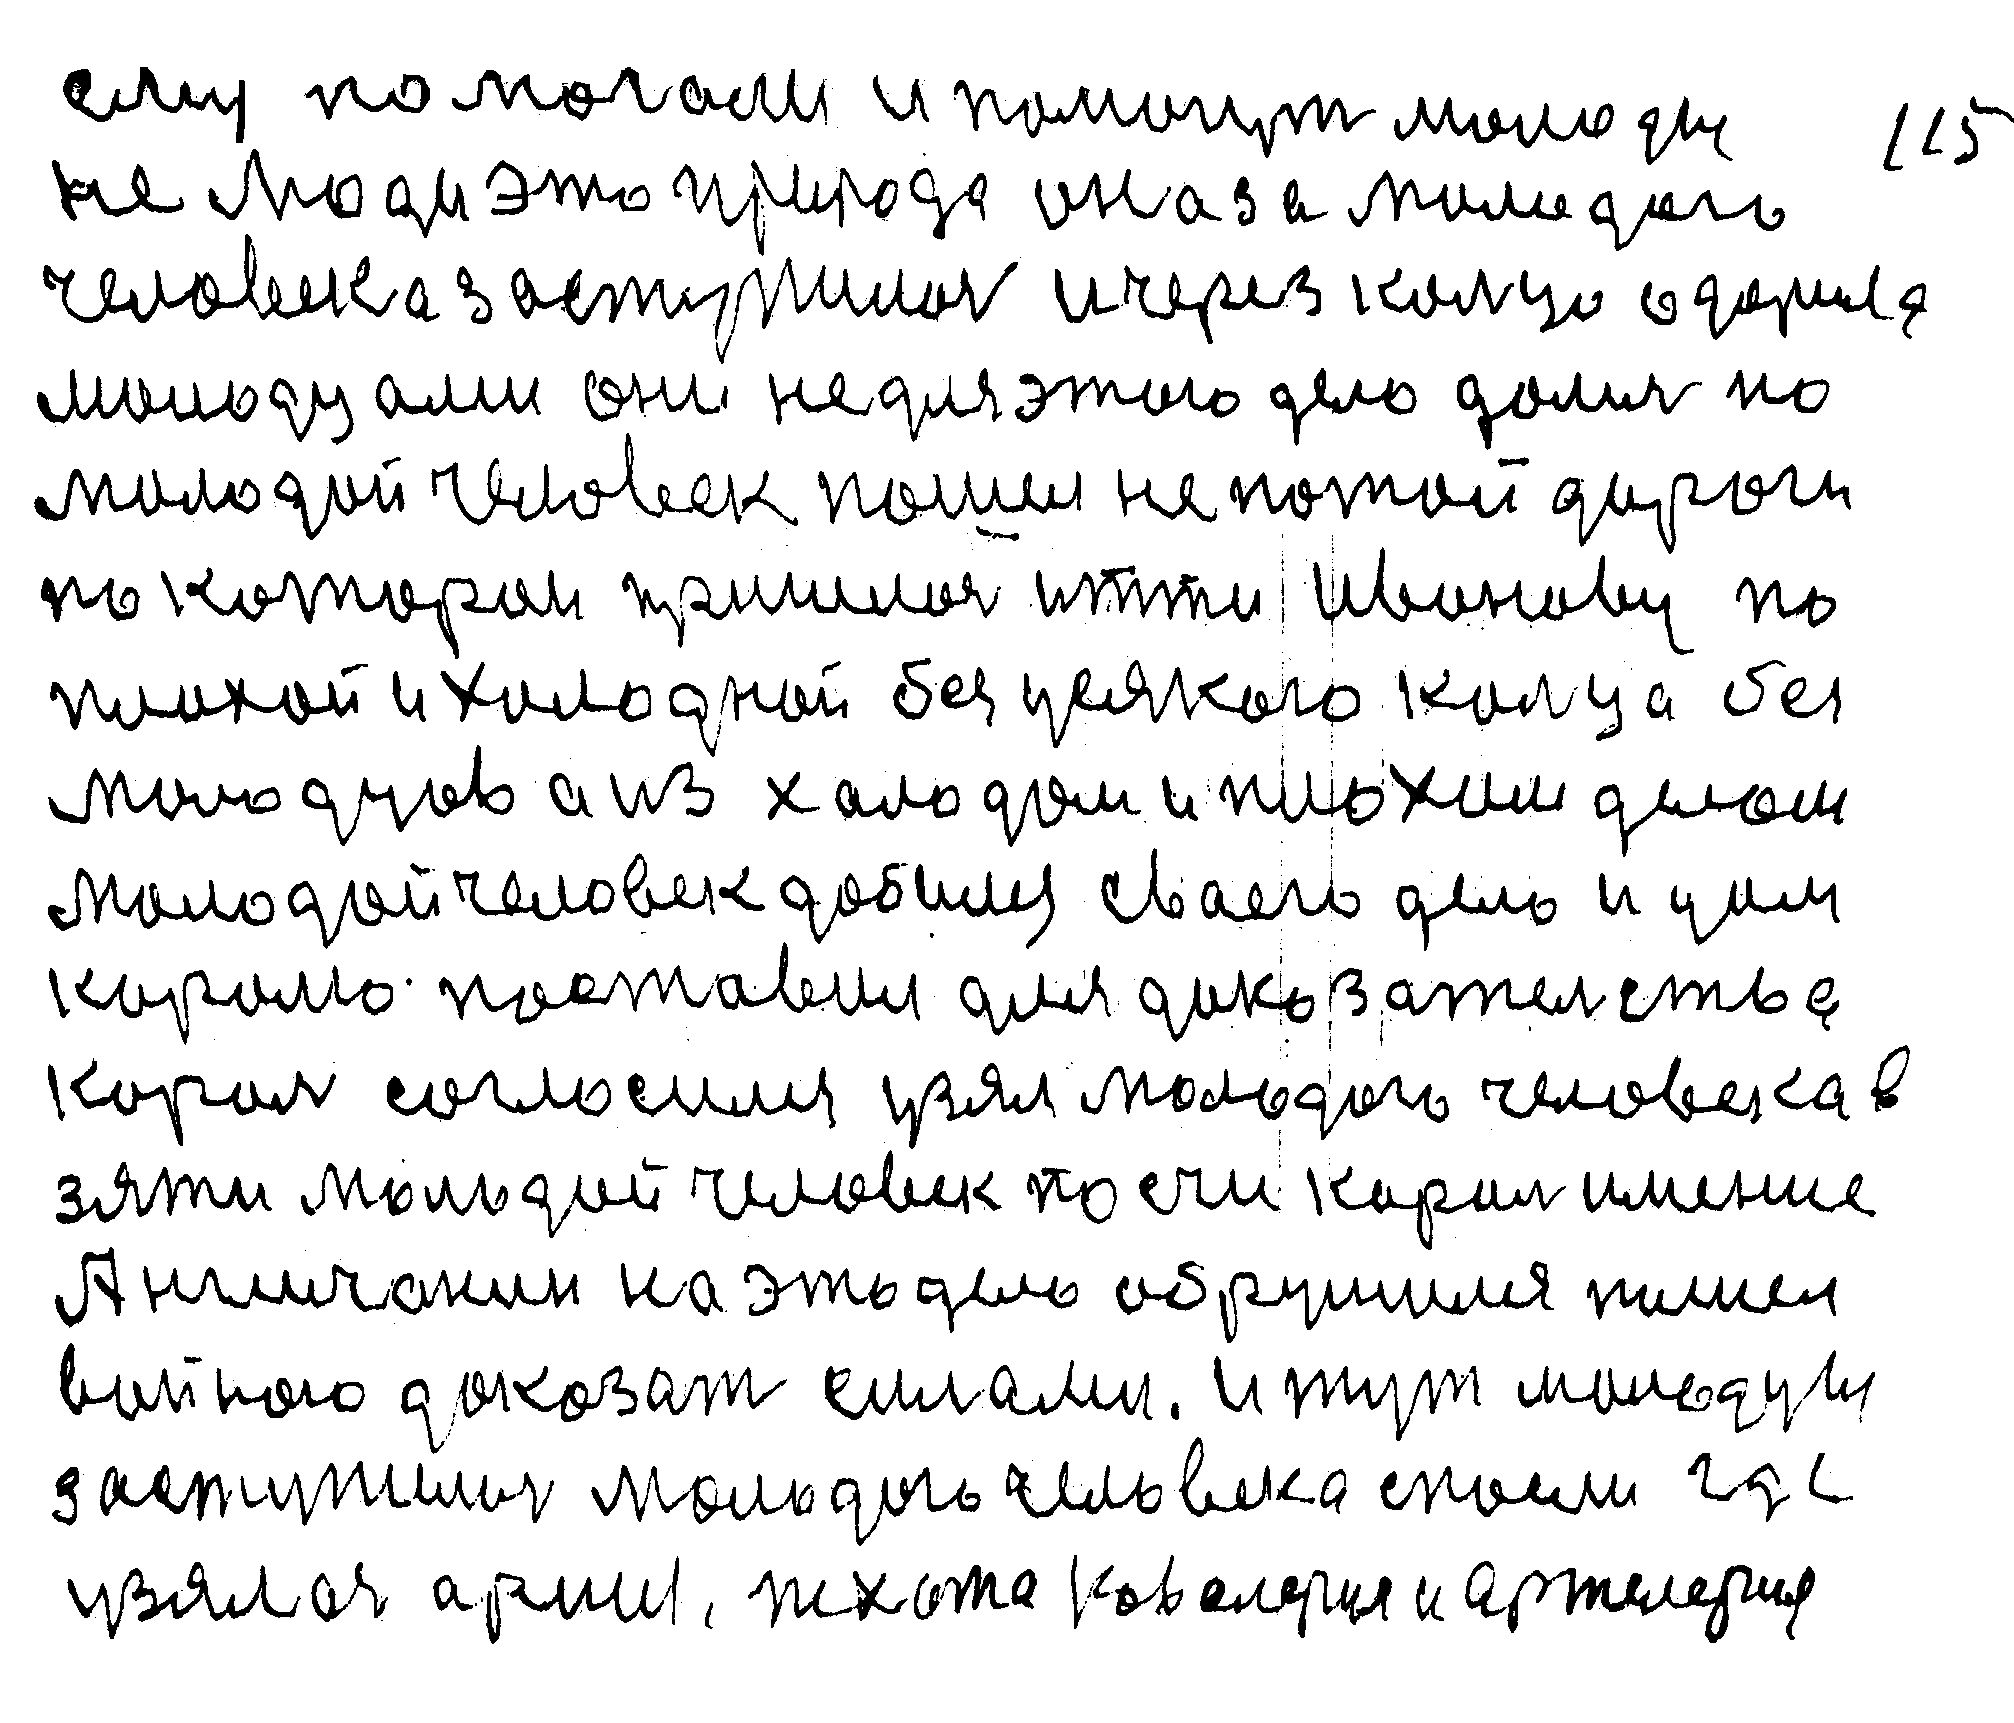 ему помогали и помощт молоды 115
не Люди это природа она за молодого
человека заступилас и через колцо одарила
молодцами они не для этого дело далис но
молодой человек пошел не по той дороги
по которой пришлос итти Иванову по
плохой и холодной без усякого колца без
молодцов а из халодом и плохим делом
молодой человек добился сваего дело и цели
королю поставил для доказателства
корол согласился узял молодого человека в
зяти молодой человек по счи корол имение
Англичанин на это дело обрушился пошел
войною доказат силами. И тут молодцы
заступилис молодого человека спасли где
узялас армия, пехота Ковалерия и Артилерия